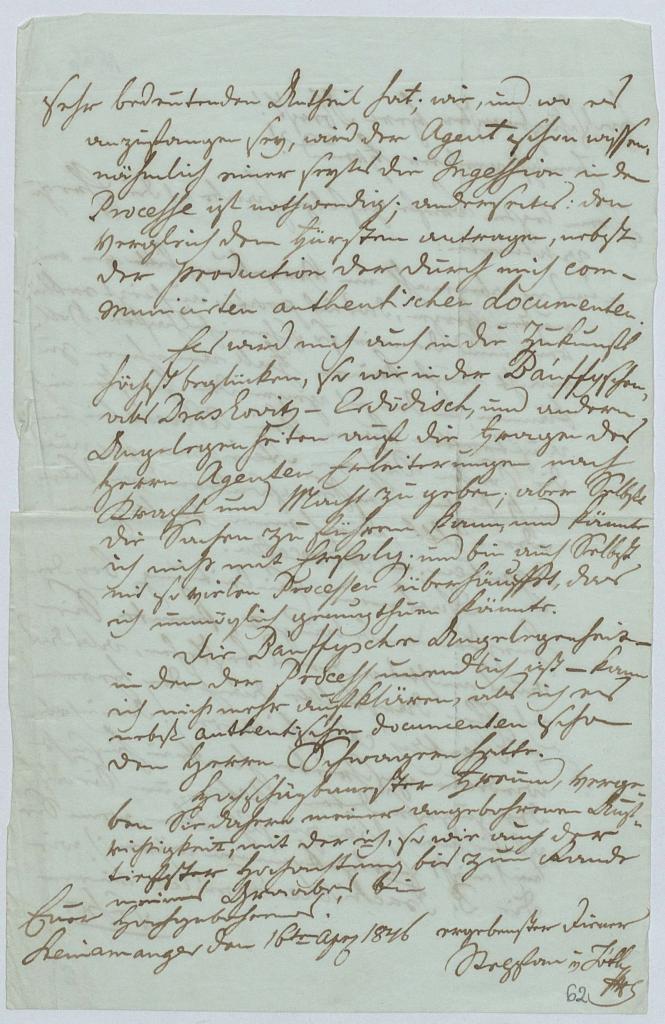 sehr bedeutenden Antheil hat; wie, und wo es
anzufangen sey, wird der Agent schon wissen,
nähmlich einer seyts die Ingession in den
Processe ist nothwendig; anderseits: den
Vergleich dem Fürsten antragen, nebst
der Production der durch mich com-
municirten authentischen Documenten.
Es wird mich auch in die Zukunft
höchst beglücken, so wie in der Bánffyschen,
als Draskovitz - Erdödisch, und andern
Angelegenheiten auf die Fragen des
Herrn Agenten Erleiterungen nach
Kraft und Macht zu geben; aber Selbst
die Sachen zu führen kann, und könnte
ich nicht mit Erfolg; und bin auch Selbst
mit so vielen Processen überhäufft, das
ich unmöglich genugthuen könnte.
Die Bánffysche Angelegenheit -
in den der Process unendlich ist - kann
ich nicht mehr aufklären, als ich es
nebst authentischen Documenten schon
den Herrn Schwagern hatte.
Hochschätzbarester Freund, verge-
ben Sie daher meiner angebohrenen Auf-
richtigkeit, mit der ich, so wie auch der
tiefster Hochachtung bis zum Rande
meines Grabes, bin
Euer Hochgebohrens!
Steinamanger den 16t Apr 1846 ergebenster Diener
Stephan v
62